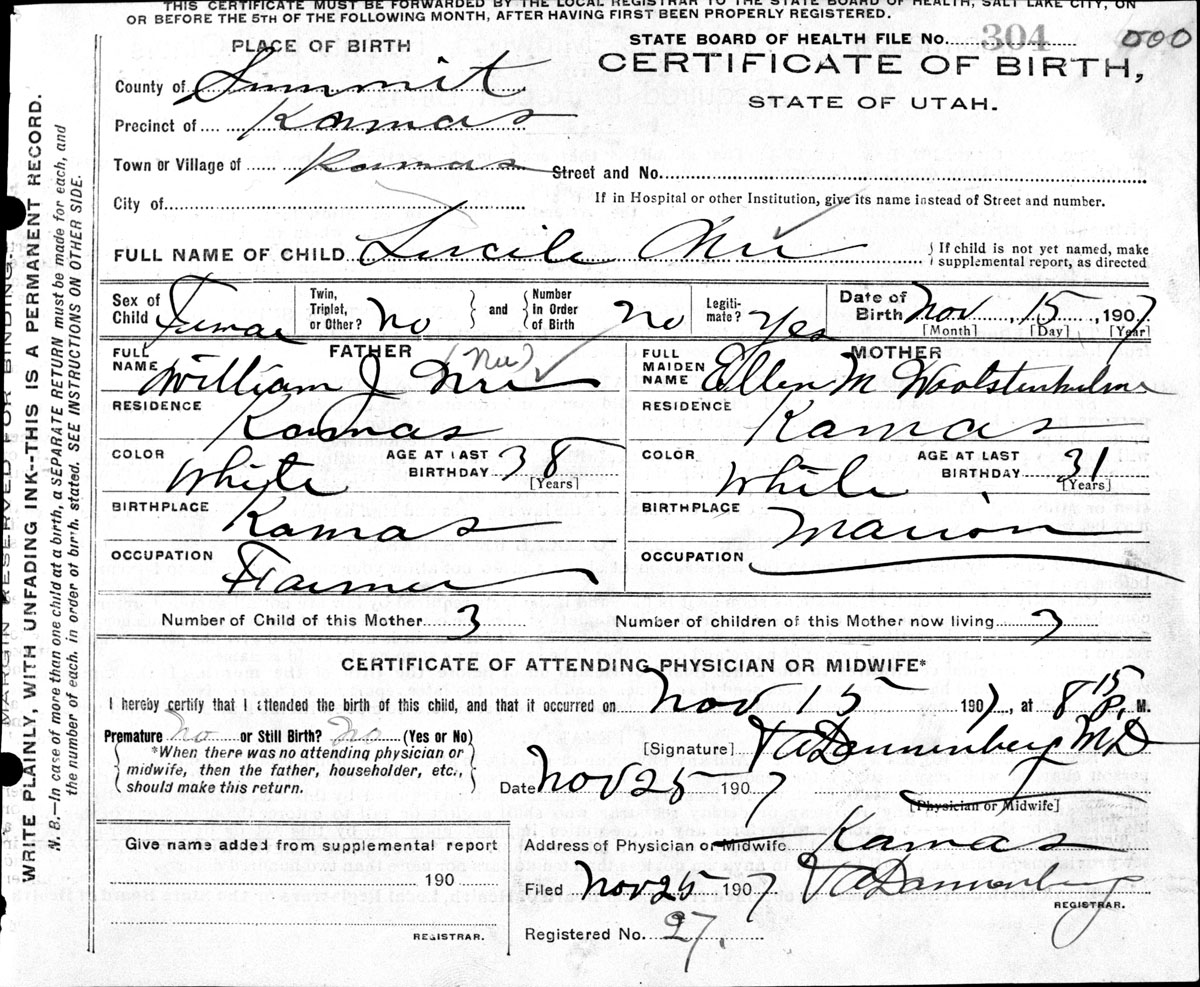 THIS CERTIFICATE MUST BE FORWARDED BY THE LOCAL REGISTRAR TO THE STATE BOARD OF HEALTH, SALT LAKE CITY, ON
OR BEFORE THE 5TH OF THE FOLLOWING MONTH, AFTER HAVING FIRST BEEN PROPERLY REGISTERED.
PLACE OF BIRTH
STATE BOARD OF HEALTH FILE No. 304 000
CERTIFICATE OF BIRTH,
STATE OF UTAH.
County of Summit
Precinct of Kamas
Town or Village of Kamas Street and No.
City of If in Hospital or other Institution, give its name instead of Street and number.
FULL NAME OF CHILD Lucile If child is not yet named, make supplemental report, as directed
Sex of Child Twin, Triplet, or Other? No and Number In Order of Birth No Legitimate? Yes Date of Birth Nov 15, 1907
[Month] [Day] [Year]
FATHER MOTHER
FULL NAME William J FULL MAIDEN NAME Ellen M Woolstenhulme
RESIDENCE Kamas RESIDENCE Kamas
COLOR White AGE AT LAST BIRTHDAY 38 [Years] COLOR White AGE AT LAST BIRTHDAY 31 [Years]
BIRTHPLACE Kamas BIRTHPLACE Marion
OCCUPATION Farmer OCCUPATION
Number of Child of this Mother 3 Number of children of this Mother now living 3
CERTIFICATE OF ATTENDING PHYSICIAN OR MIDWIFE*
I hereby certify that I attended the birth of this child, and that it occurred on Nov 15 1907, at 8 15 P. M.
Premature No or Still Birth? No (Yes or No)
*When there was no attending physician or midwife, then the father, householder, etc., should make this return.
[Signature] Dannenberg MD
Date Nov 25 1907
[Physician or Midwife]
Give name added from supplemental report
190
REGISTRAR.
Address of Physician or Midwife Kamas
Filed Nov 25 1907 Dannenberg
REGISTRAR.
Registered No. 27.
MARGIN RESERVED FOR BINDING.
WRITE PLAINLY, WITH UNFADING INK--THIS IS A PERMANENT RECORD.
N. B.—In case of more than one child at a birth, a SEPARATE RETURN must be made for each, and
the number of each, in order of birth, stated. SEE INSTRUCTIONS ON OTHER SIDE.